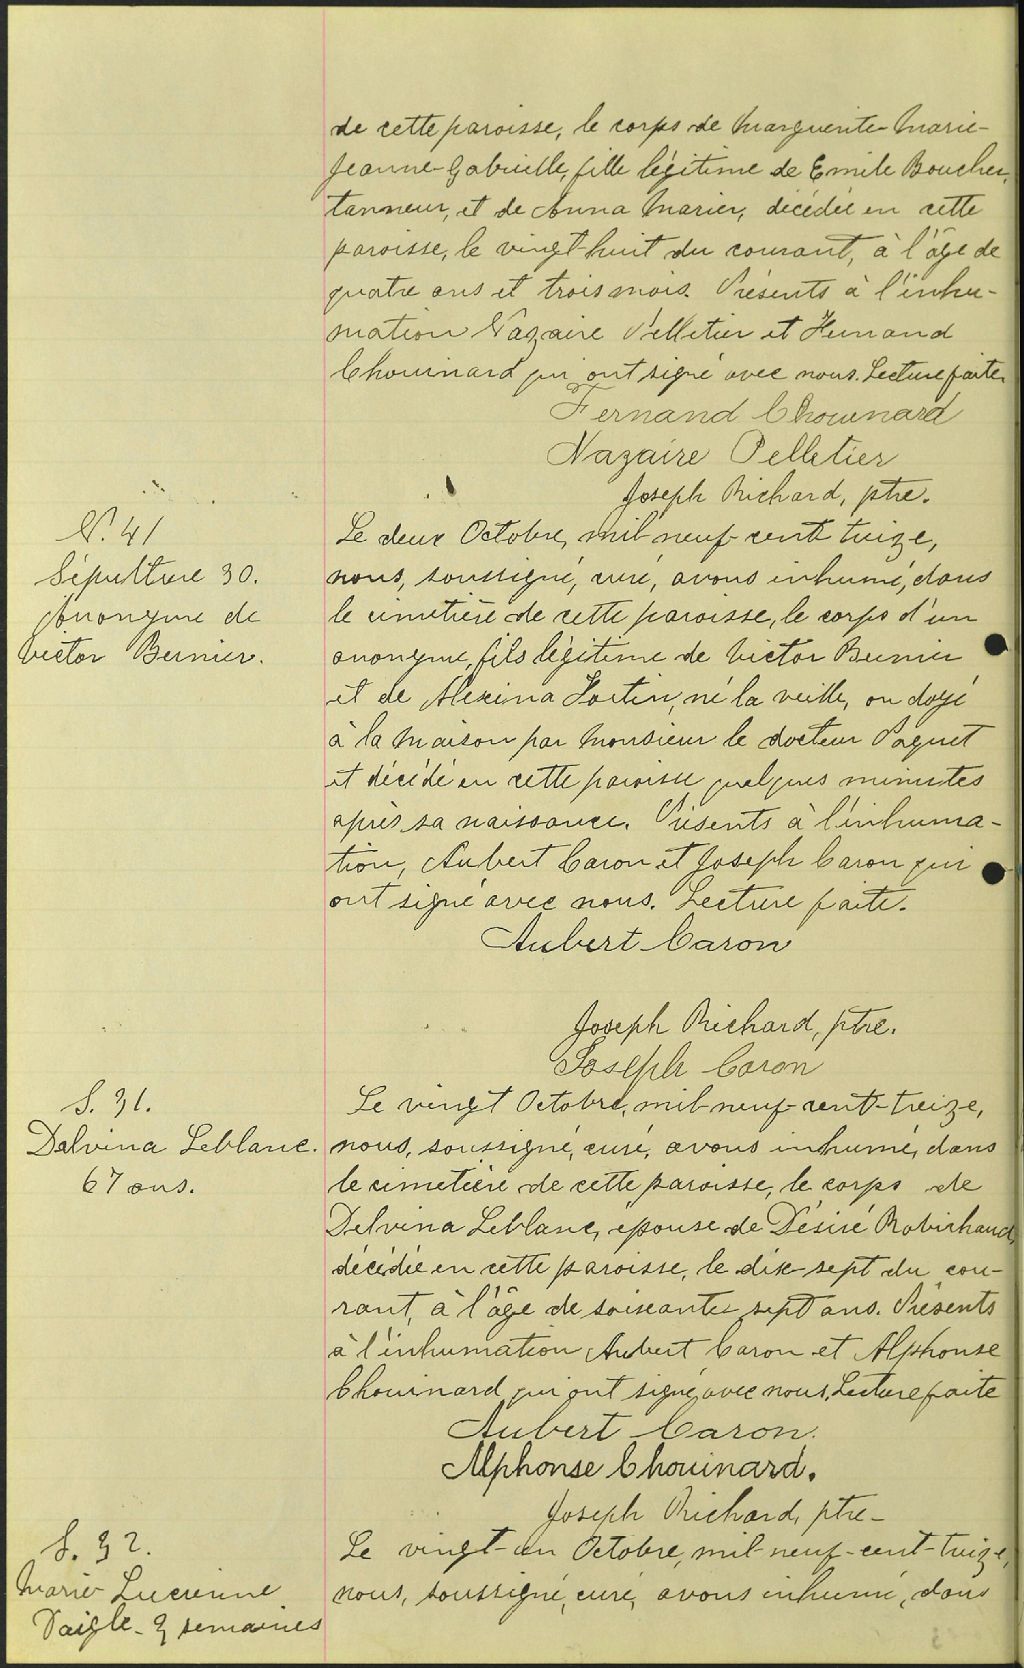 de cette paroisse, le corps de Marguerite-Marie-
Jeanne-Gabrielle, fille légitime de Emile Boucher,
tanneur, et de Anna Marier, décédée en cette
paroisse, le vingt-huit du courant, à l'âge de
quatre ans et trois mois. Présents à l'inhu-
mation Nazaire Pelletier et Fernand
Chouinard qui ont signé avec nous. Lecture faite.
Fernand Chouinard
Nazaire Pelletier
Joseph Richard, ptre.
N. 41
Sépulture 30.
Anonyme de
Victor Bernier.
Le deux Octobre, mil-neuf-cent treize,
nous, soussigné, curé, avons inhumé, dans
le cimetière de cette paroisse, le corps d'un
anonyme, fils légitime de Victor Bernier
et de Alexina Fortin, né la veille, ondoyé
à la maison par Monsieur le docteur Paquet
et décédé en cette paroisse quelques minutes
après sa naissance. Présents à l'inhuma-
tion, Aubert Caron et Joseph Caron qui
ont signé avec nous. Lecture faite.
Aubert Caron
Joseph Richard, ptre.
Joseph Caron
S. 31.
Delvina Leblanc.
67 ans.
Le vingt Octobre, mil-neuf-cent-treize,
nous, soussigné, curé, avons inhumé, dans
le cimetière de cette paroisse, le corps de
Delvina Leblanc, épouse de Désiré Robichaud,
décédée en cette paroisse, le dix-sept du cou-
rant, à l'âge de soixante sept ans. Présents
à l'inhumation Aubert Caron et Alphonse
Chouinard, qui ont signé avec nous. Lecture faite
Aubert Caron.
Alphonse Chouinard.
Joseph Richard, ptre-
S. 32.
Marie Lucienne
Daigle - 3 semaines
Le vingt-un Octobre, mil-neuf-cent-treize,
nous, soussigné, curé, avons inhumé, dans